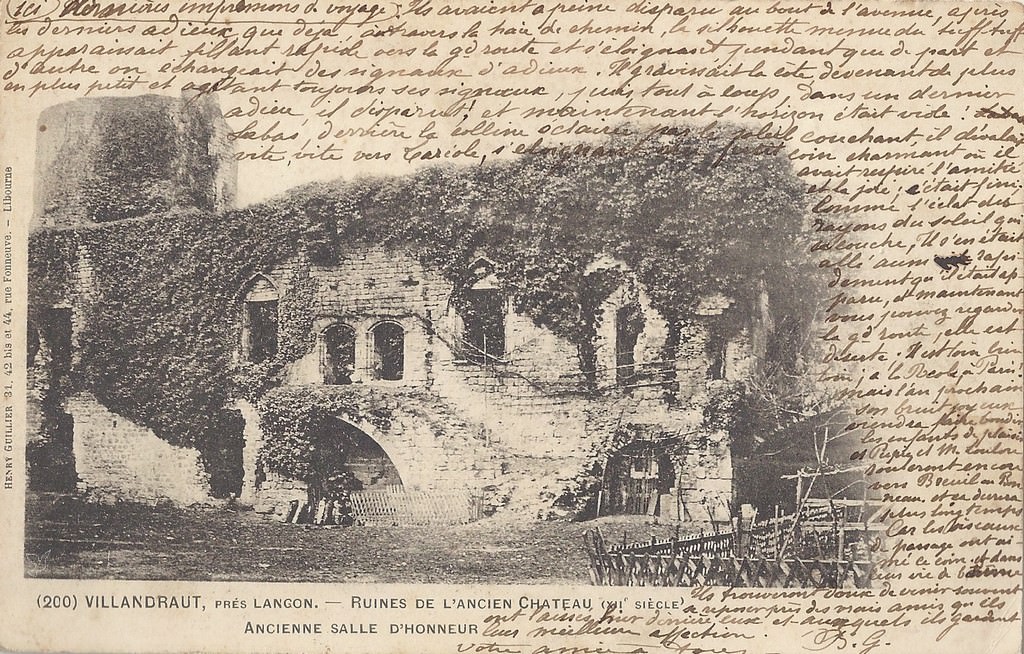 (1er) Dernières impressions de voyage; Ils avaient à peine disparu au bout de l'avenue, après
les derniers adieux, que déjà, à travers la haie de chemin, la silhouette menue du tuff-tuff
apparaissait filant rapide vers la gde route et s'éloignait pendant que de part et
d'autre on échangeait des signaux d'adieux. Il gravissait la côte, devenant de plus
en plus petit et agitant toujours ses signaux, puis tout à coup, dans un dernier
adieu, il disparut, et maintenant l'horizon était vide!
Labas, derrière la colline par le soleil couchant, il dévalait
vite, vite vers s'éloignant coin charmant où il
avait respiré l'amitié
et la joie; c'était fini
comme l'éclat des
rayons du soleil qui
se couche, Il s'en était
allé aussi rapi-
dement qu'il était ap-
paru, et maintenant
vous pouvez regarder
la gde route, elle est
déserte. Il est loin bien
loin, à Paris!
mais l'an prochain
son bruit joyeux
viendra faire bondir
les enfants de plaisir
et Pépée et Mr
rouleront encore
vers
et ça durera
plus longtemps
Car les oiseaux
de passage ont ai-
mé ce coin et dans
leur vie de
Ils trouveront doux de venir souvent
se reposer près de vrais amis qu'ils
ont laissés hier derrière eux et auxquels ils gardent
leur meilleure affection.
Votre amie à tous B. G.
HENRY GUILLIER 31, 42 bis et 44, rue Fonneuve. – Libourne
(200) VILLANDRAUT, PRÉS LANGON. — RUINES DE L'ANCIEN CHATEAU (XIIe SIÈCLE)
ANCIENNE SALLE D'HONNEUR